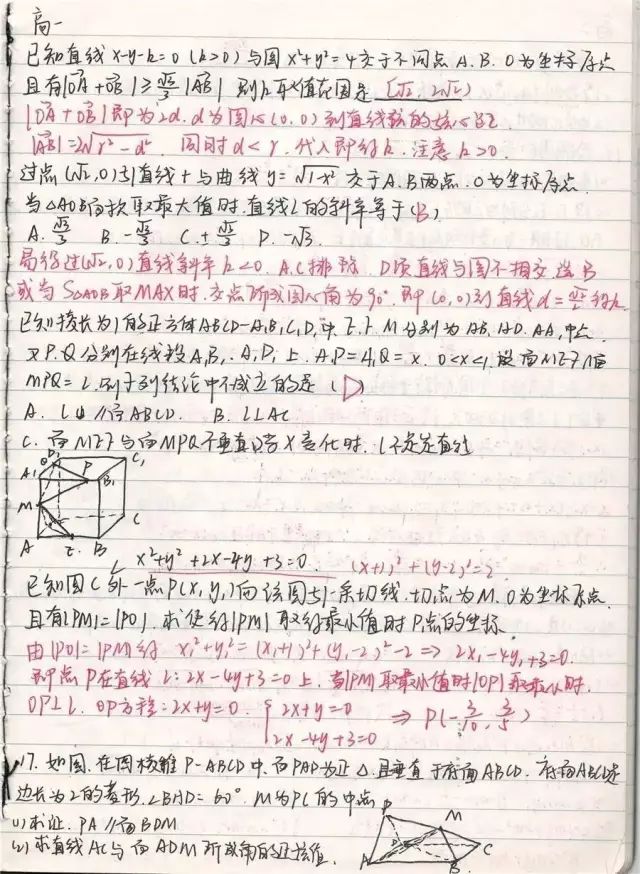 高一
已知直线 x-y-k=0 (k>0) 与圆 x²+y²=4 交于不同点 A. B. O为坐标原点
且有|OA+OB|≥√3/3|AB| 则k取值范围是 [√2, 2√2)
|OA+OB|即为2d. d为圆心(0,0)到直线的距离
|AB|=2√r²-d². 同时d<r. 代入即得k. 注意k>0.
过点(√2,0)引直线l与曲线y=√1-x² 交于A.B两点. O为坐标原点.
当△AOB面积取最大值时. 直线l的斜率等于(B)
A. √3/3 B. -√3/3 C. ±√3/3 D. -√3.
易得过(√2,0)直线斜率k<0. A.C排除. D项直线与圆不相交 选B
或当S△AOB取MAX时. 交点所成圆心角为90°. 即(0,0)到直线d=√2/2得k.
已知棱长为1的正方体ABCD-A₁B₁C₁D₁中. E.F.M分别为AB.AD.AA₁中点.
又P.Q分别在线段A₁B₁. A₁D₁上. A₁P=A₁Q=x. 0<x<1. 设面MEF∩面
MPQ=l. 则下列结论中不成立的是 D
A. l∥面ABCD. B. l⊥AC
C. 面MEF与面MPQ不垂直 D. 当x变化时. l不是定直线
D₁ C₁ A₁ P B₁ M C A E B
x²+y²+2x-4y+3=0 (x+1)²+(y-2)²=2
已知圆C外一点P(x₁y₁)向该圆引一条切线. 切点为M. O为坐标原点.
且有|PM|=|PO|. 求使得|PM|取得最小值时P点的坐标.
由|PO|=|PM|得 x₁²+y₁²=(x₁+1)²+(y₁-2)²-2 => 2x₁-4y₁+3=0.
即点P在直线l:2x-4y+3=0上. 当|PM|取最小值时|OP|取最小时.
OP⊥l. OP方程:2x+y=0. { 2x+y=0 ⇒ P(-3/10, 3/5)
2x-4y+3=0
17. 如图. 在四棱锥P-ABCD中. 面PAD为正△. 且垂直于底面ABCD. 底面ABCD是
边长为2的菱形. ∠BAD=60° M为PC的中点
(1)求证. PA∥面BDM
(2)求直线AC与面ADM所成角的正弦值.
P M D C A B